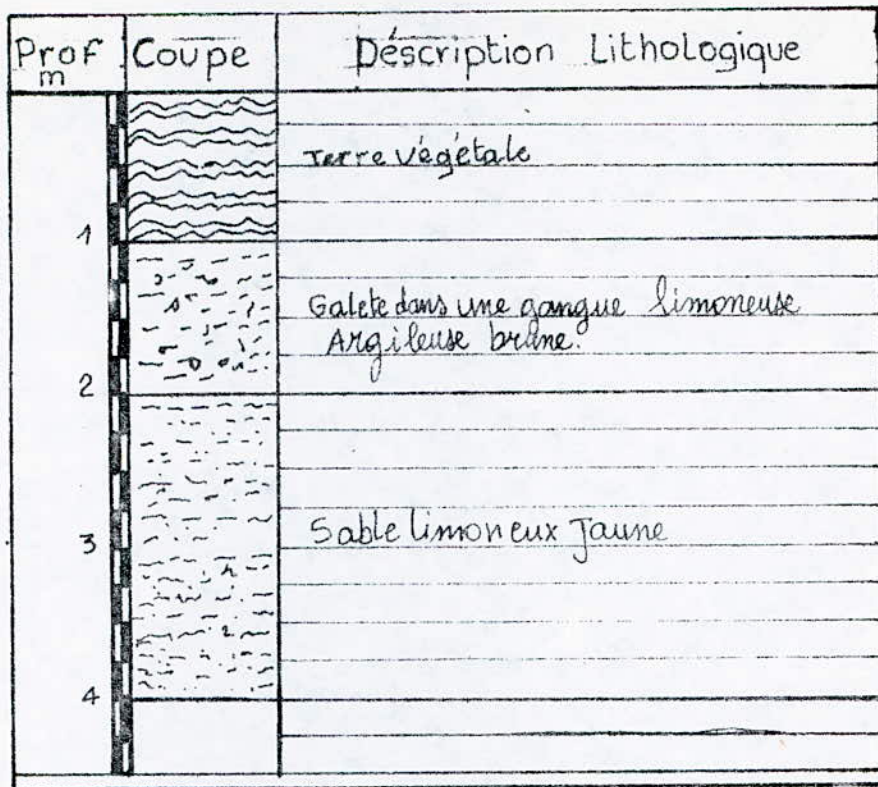 Prof Coupe Déscription Lithologique
m
Terre végétale
1
Galete dans une gangue limoneuse
Argileuse brune.
2
Sable limoneux Jaune
3
4